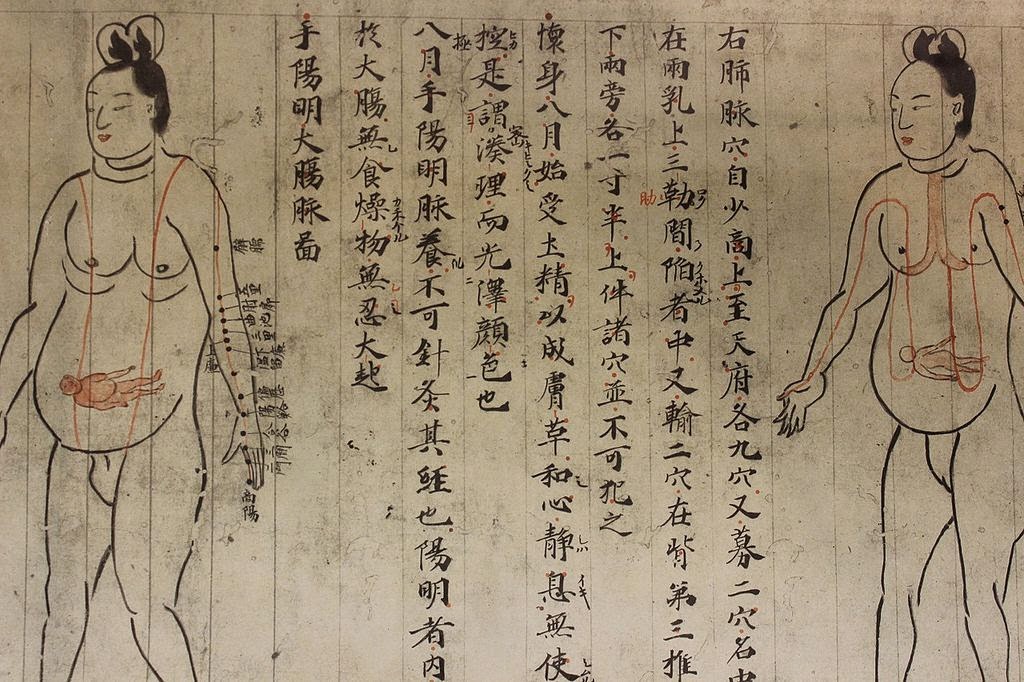 右肺脉穴自少商上至天府各九穴又募二穴名中
在兩乳上三勒間陷者中又輸二穴在背第三推
肋
下兩旁各一寸半上件諸穴並不可犯之
懷身八月始受土精以成膚革和心静息無使
控是謂湊理而光澤顔色也
極
密
八月手陽明脉養不可針灸其経也陽明者内
於大膓無食燥物無忍大起
手陽明大膓脉啚
臂臑
五里
曲池
三里
上廉
下廉
合谷
三間
二間
商陽